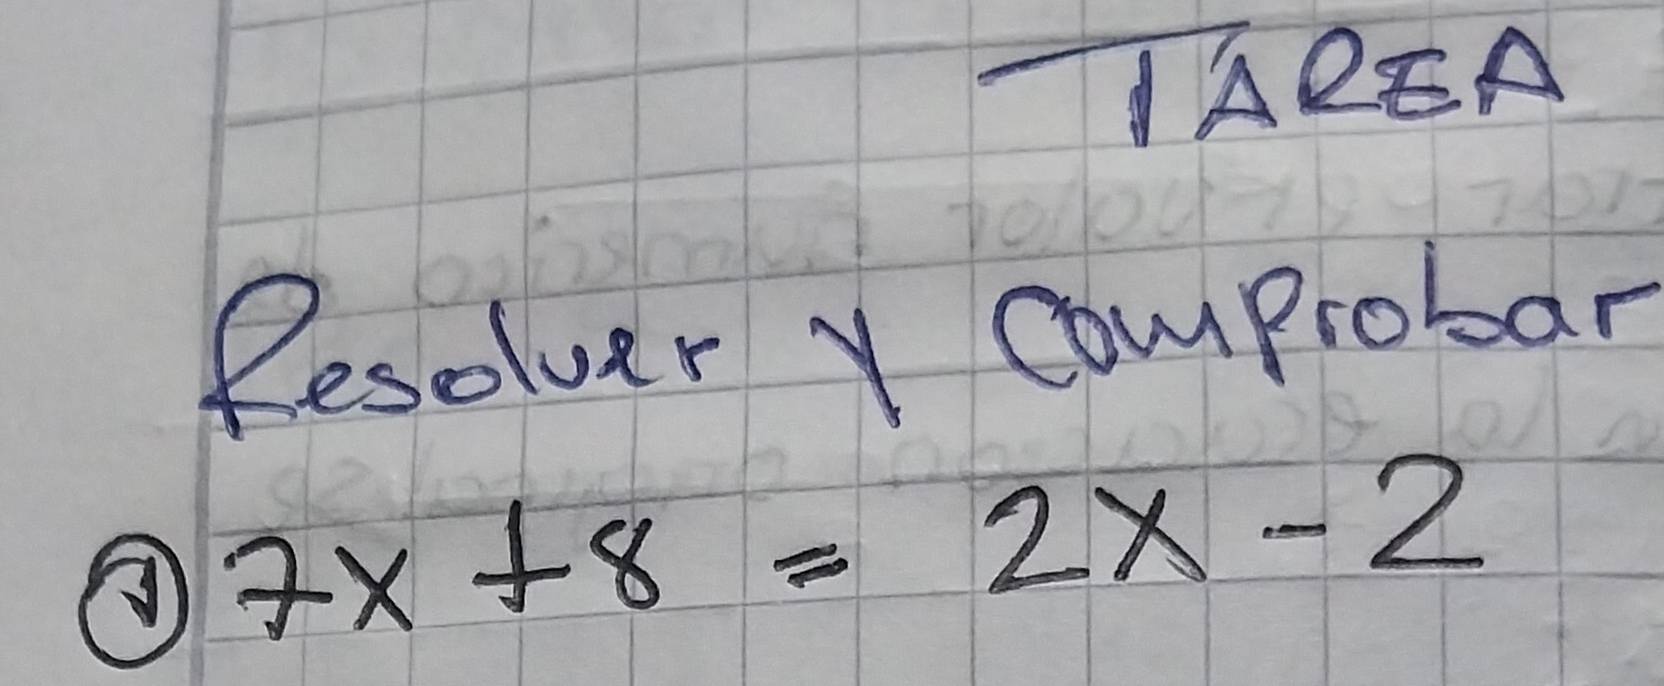 TAREA
Resolver y comprobar
① 7x + 8 = 2x - 2